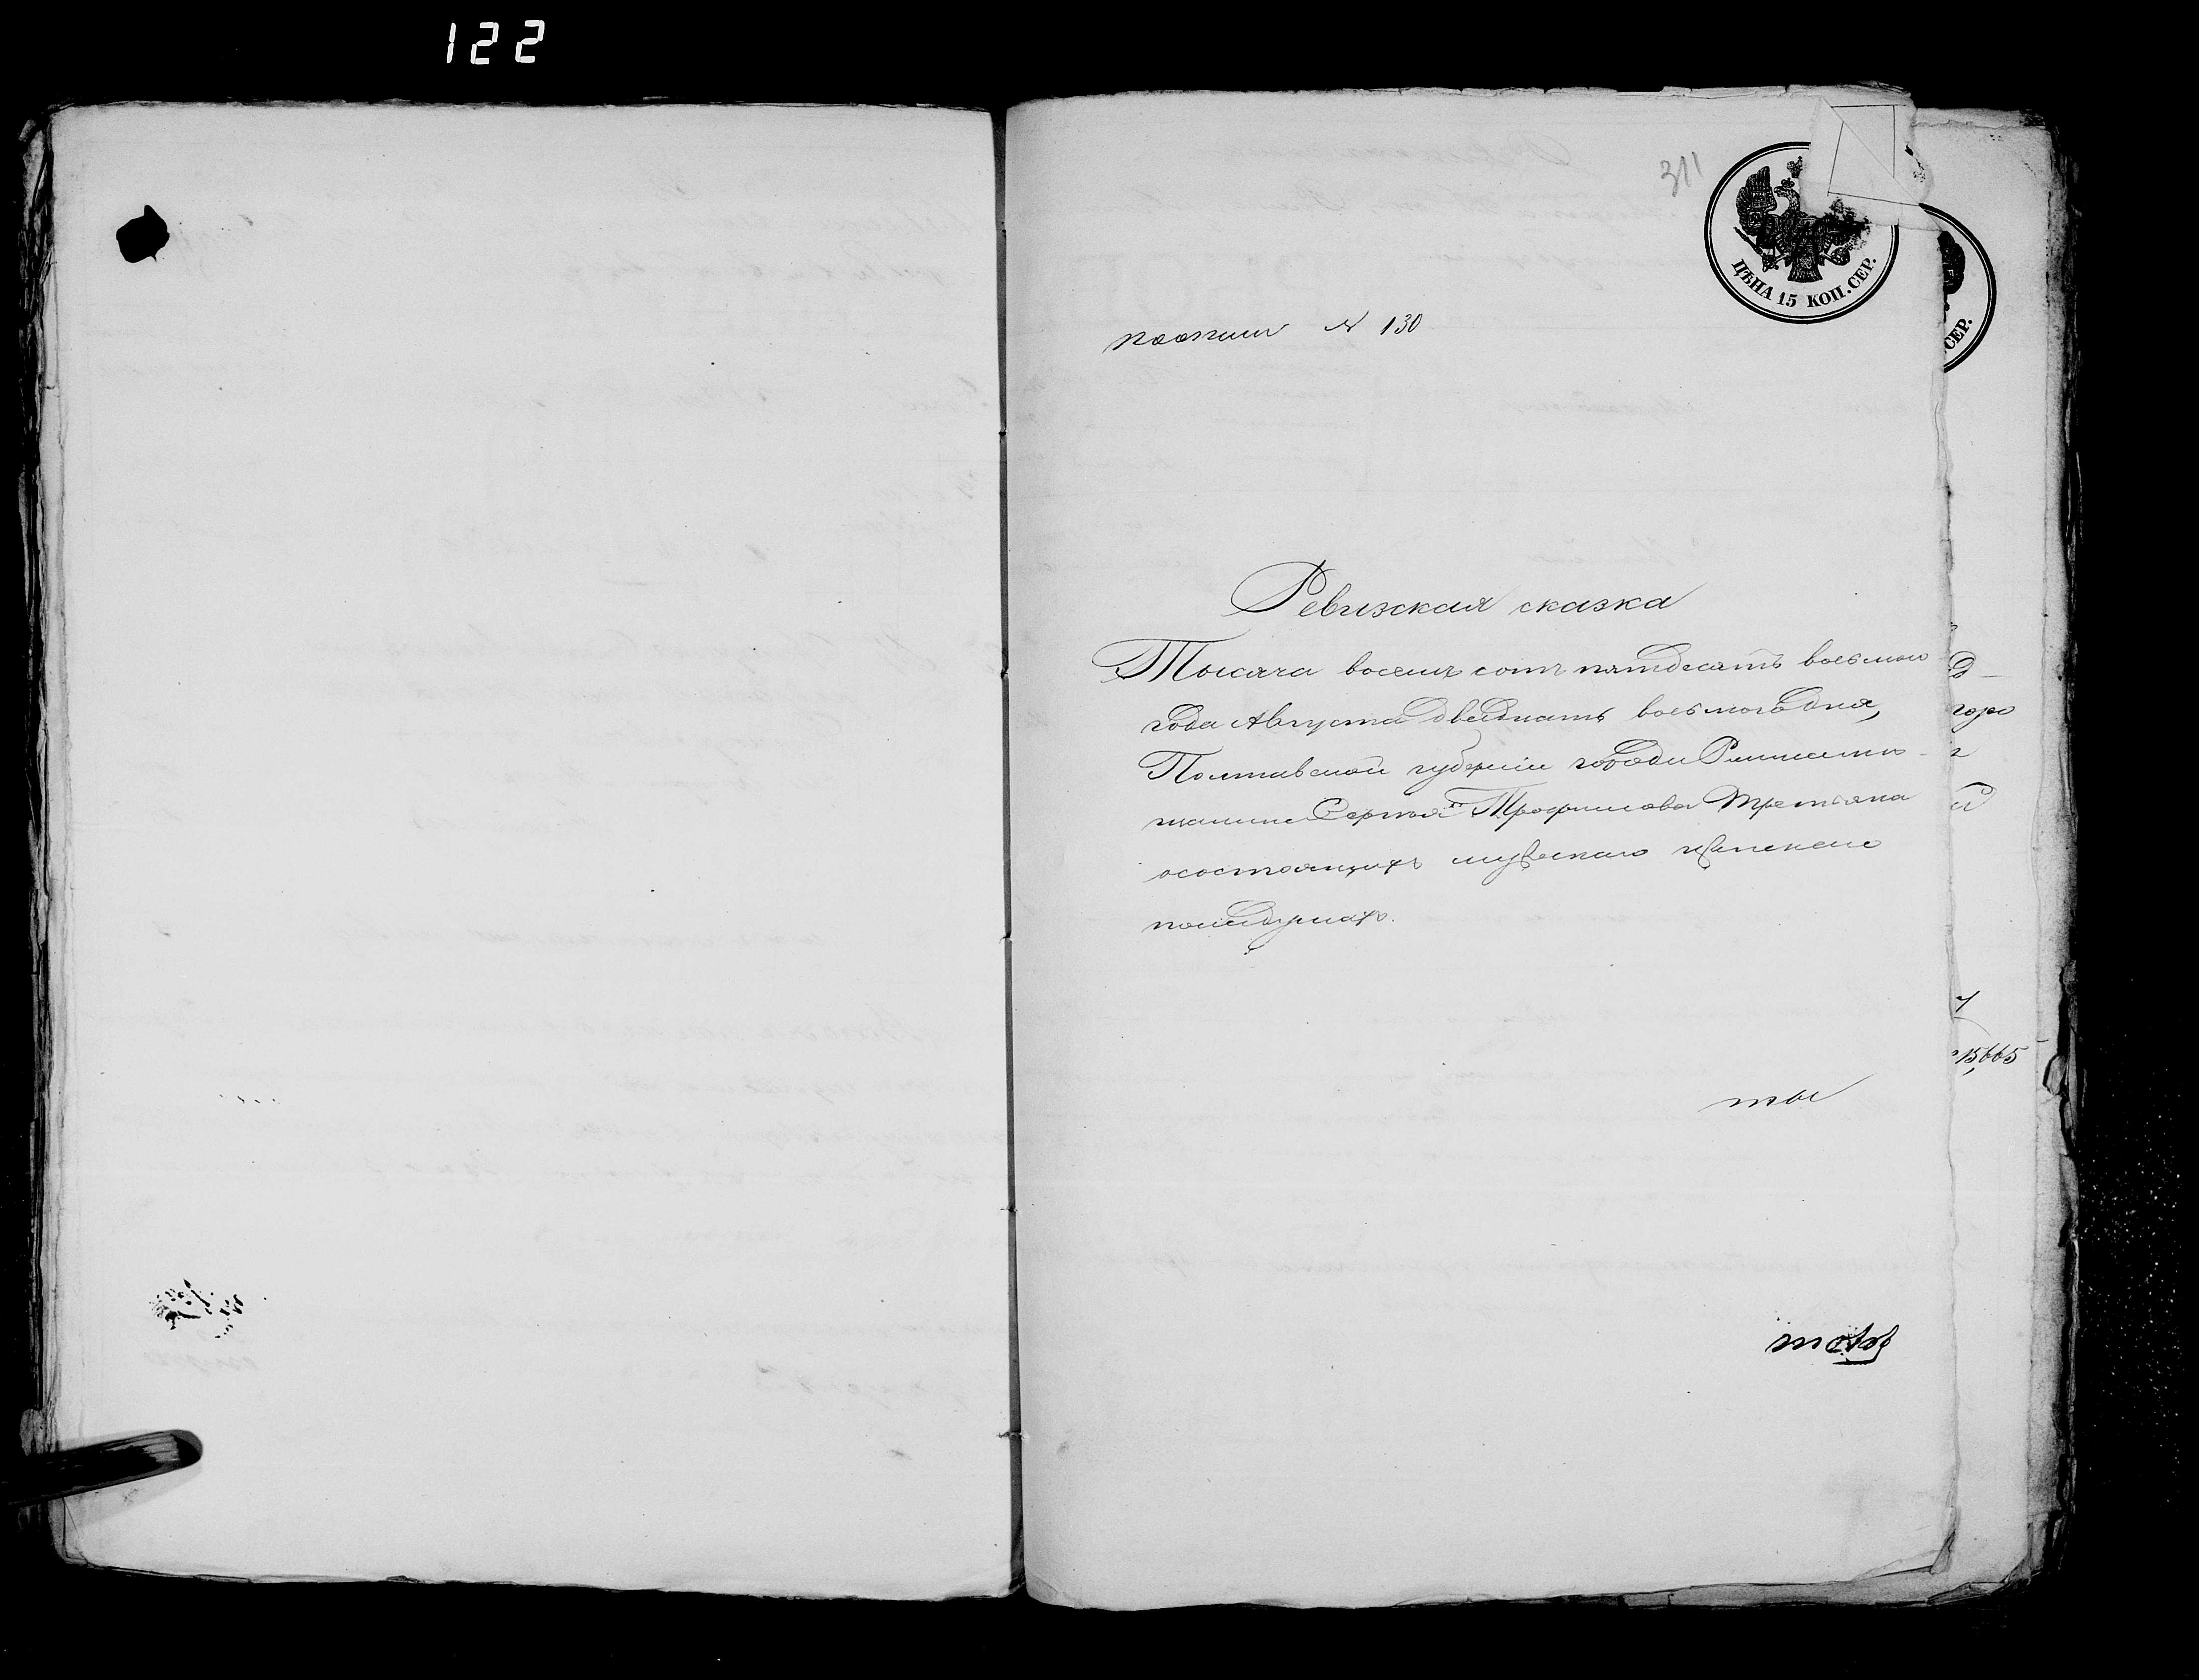 122
311
ЦѢНА 15 КОП. СЕР.
СЕР.
по описи № 130
Ревизская сказка
Тысяча восемь сотъ пятдесятъ восьмого
года Августа двадцать восьмого дня,
Полтавской губерніи города
Сергея Трофимова Третьяка
осостоящихъ мужескаго иженскаго
пола душахъ.
15,665